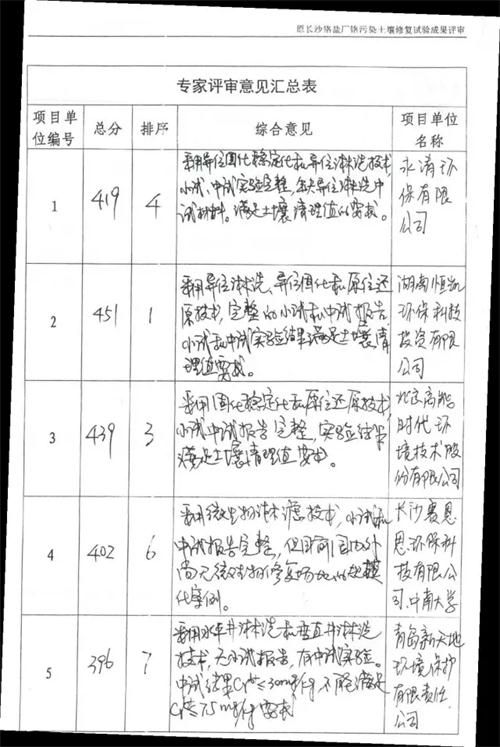 原长沙铬盐厂铬污染土壤修复试验成果评审
专家评审意见汇总表
项目单位编号 总分 排序 综合意见 项目单位名称
1 419 4
采用异位固化稳定化和异位淋洗技术,
小试、中试实验完整,缺失异位淋洗中
试材料。满足土壤清理值的要求。
永清环
保有限
公司
2 451 1
采用异位淋洗、异位固化和原位还
原技术,完整的小试和中试报告
小试和中试实验结果满足土壤清
理值要求。
湖南恒凯
环保科技
投资有限
公司
3 439 3
采用固化稳定化和原位还原技术,
小试中试报告完整,实验结果
满足土壤清理值要求。
北京高能
时代环
境技术股
份有限公司
4 402 6
采用微生物淋滤技术,小试和
中试报告完整,但目前国内外
尚无微生物修复场地的规模
化案例。
长沙赛恩
思环保科
技有限公
司、中南大学
5 396 7
采用水平井淋洗和垂直井淋洗
技术,无小试报告,有中试实验。
中试结果Cr⁶⁺≤30mg/kg不能满足
Cr⁶⁺≤7.5mg/kg要求
青岛新天地
环境保护
有限责任
公司